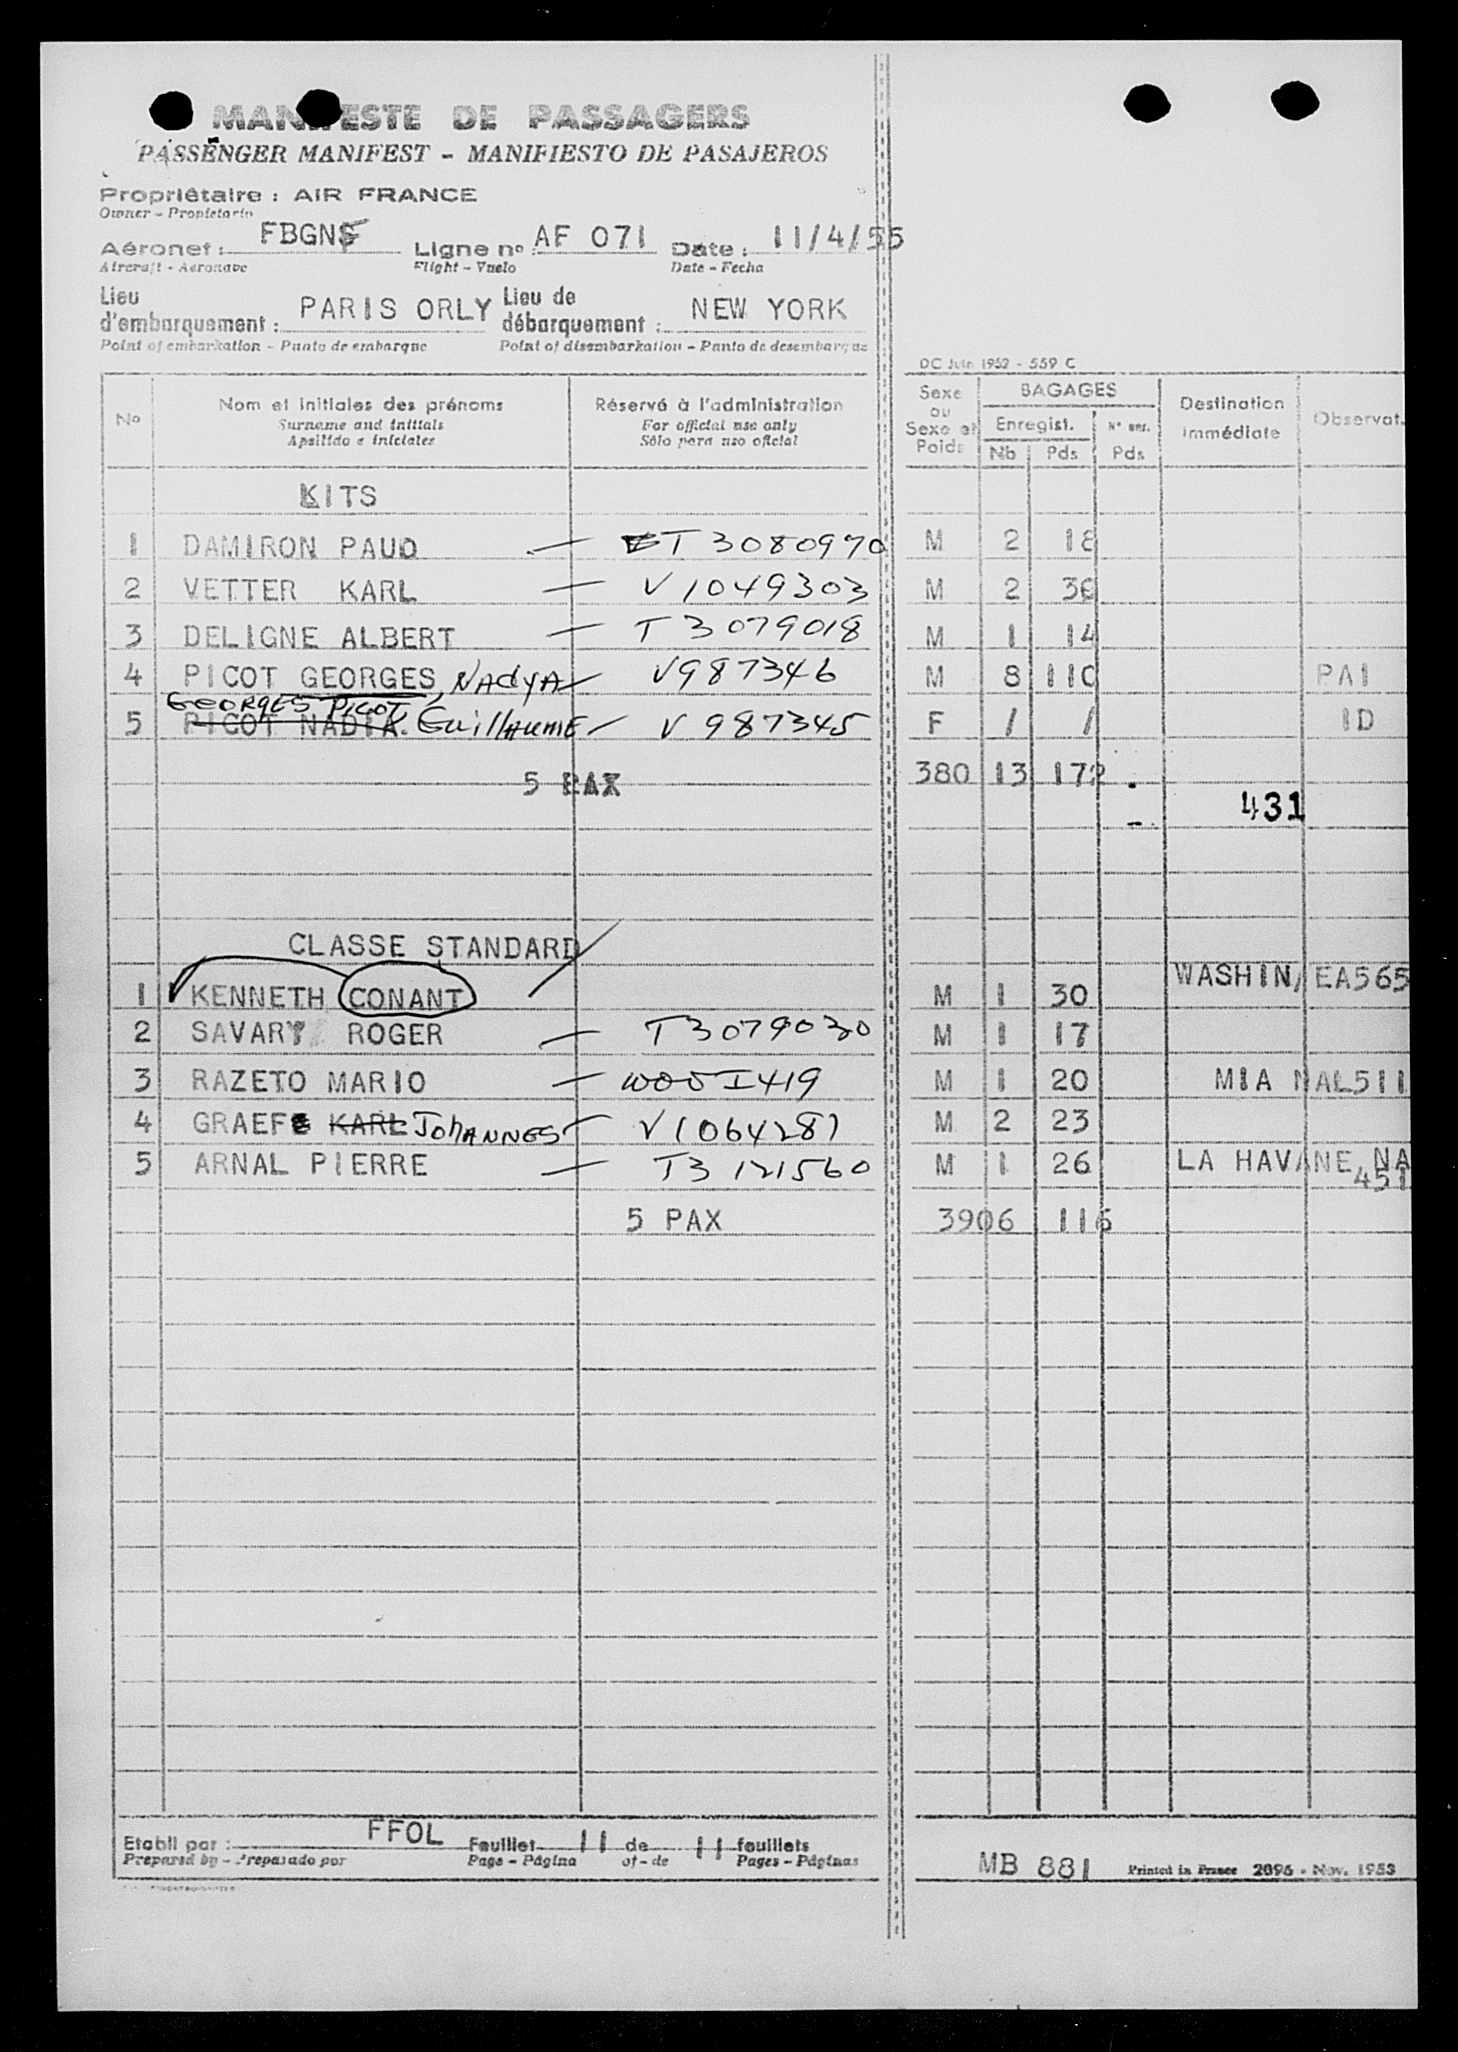 MANIFESTE DE PASSAGERS
PASSENGER MANIFEST - MANIFIESTO DE PASAJEROS
Propriétaire : AIR FRANCE
Owner - Propietario
Aéronef : FBGNS Ligne nº AF 071 Date : 11/4/55
Aircraft - Aeronave Flight - Vuelo Date - Fecha
Lieu d'embarquement : PARIS ORLY Lieu de débarquement : NEW YORK
Point of embarkation - Punto de embarque Point of disembarkation - Punto de desembarque
DC Juin 1952 - 559 C
Nº Nom et initiales des prénoms Réservé à l'administration Sexe ou Sexe et Poids BAGAGES Destination immédiate Observat.
Surname and initials For official use only Enregist.
Apellido e iniciales Sólo para uso oficial Nb Pds Pds
KITS
1 DAMIRON PAUD — T 3080970 M 2 18
2 VETTER KARL — V 1049303 M 2 30
3 DELIGNE ALBERT — T 3079018 M 1 14
4 PICOT GEORGES, NAdyA — V987346 M 8 110 PAI
GEORGES PICOT,
5 PICOT NADIA. GuillAumE — V 987345 F / / ID
5 PAX 380 13 172
431
CLASSE STANDARD
1 KENNETH CONANT M 1 30 WASHIN/EA565
2 SAVARY ROGER — T3079030 M 1 17
3 RAZETO MARIO — M 1 20 MIA NAL511
4 GRAEFE KARL JohANNES — V1064287 M 2 23
5 ARNAL PIERRE — T3 121560 M 1 26 LA HAVANE, NA
451
5 PAX 390 6 116
Etabli par : FFOL Feuillet 11 de 11 feuillets
Prepared by - Preparado por Page - Página of - de Pages - Páginas
MB 881 Printed in France 2096 - Nov. 1953